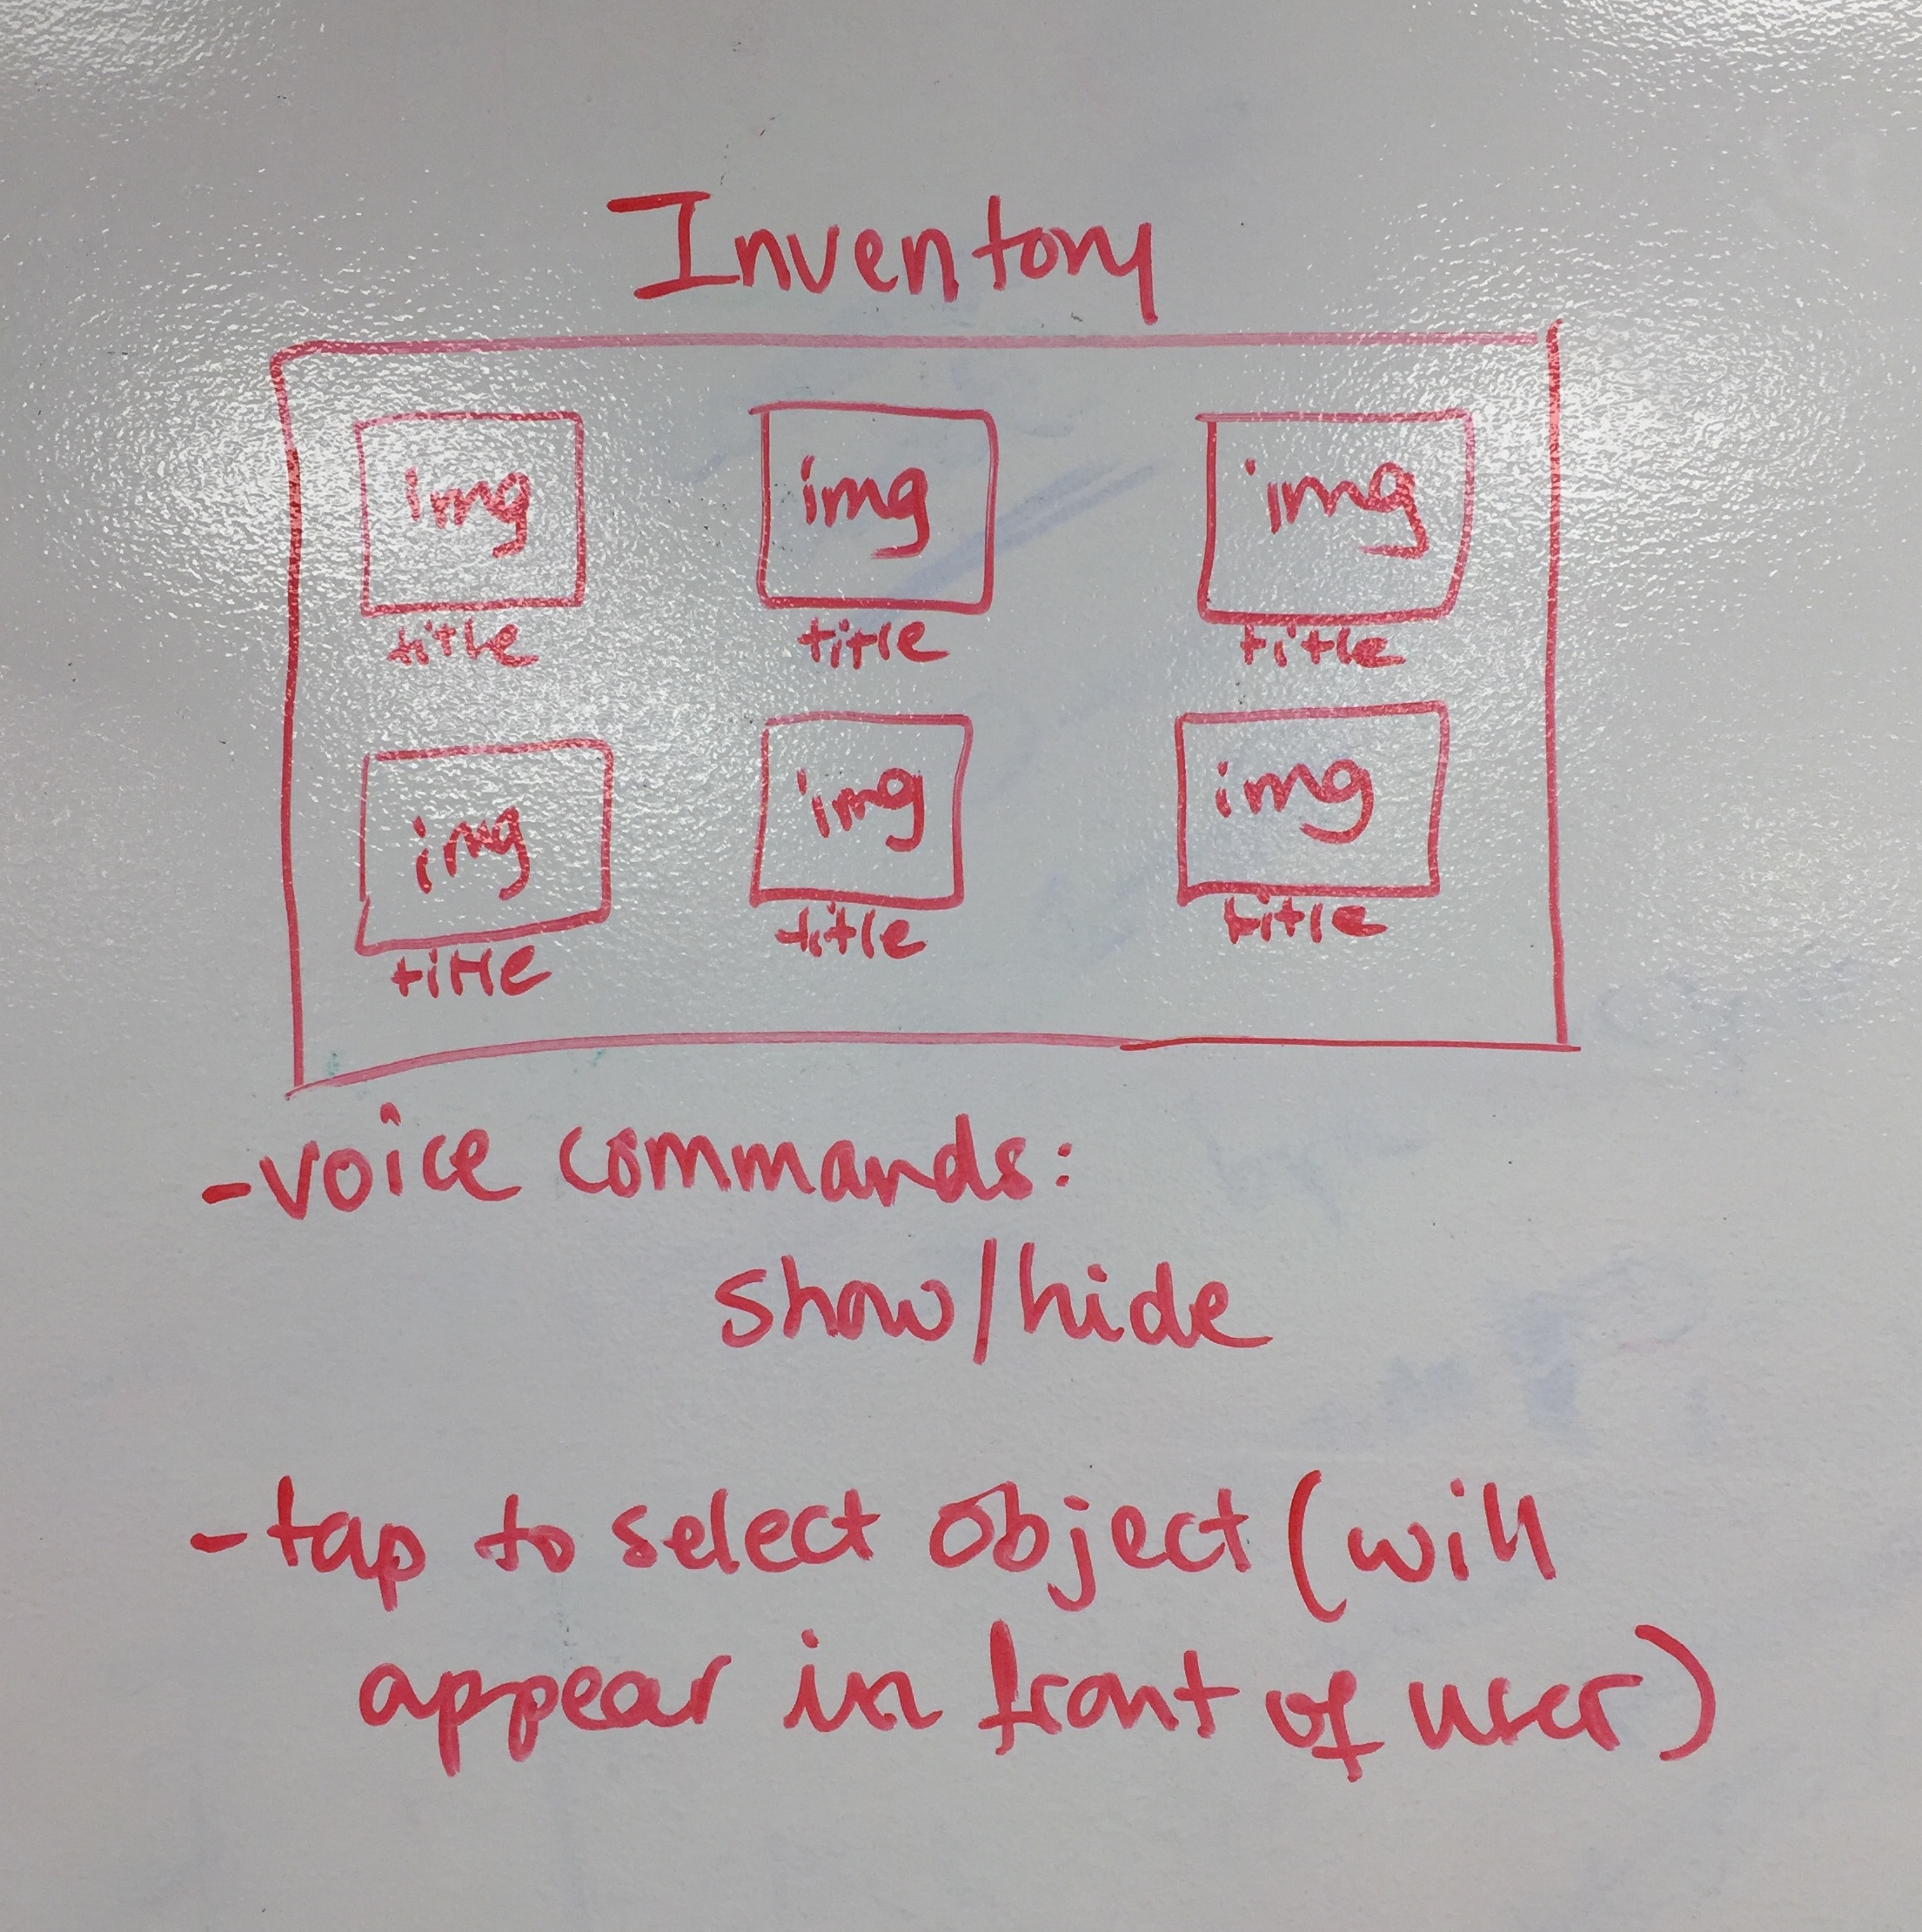 Inventory
img img img
title title title
img img img
title title title
-voice commands:
show/hide
-tap to select object (will
appear in front of user)